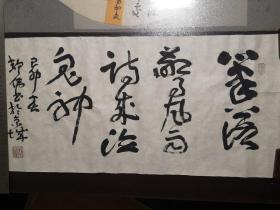 笔落
惊风雨
诗成泣
鬼神
己卯春
书於